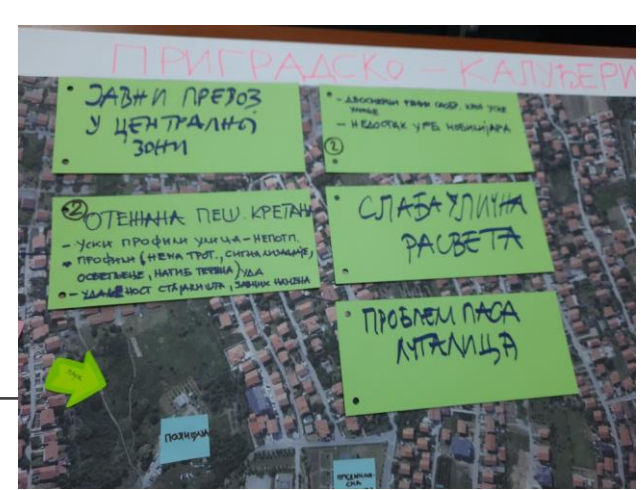 ПРИГРАДСКО - КАЛУЂЕРИ
ЈАВНИ ПРЕВОЗ
У ЦЕНТРАЛНОЈ
ЗОНИ
- ДВОСМЕРНИ
УСКЕ
УЛИЦЕ
- НЕДОСТАК УРБ. МОБИЛИЈАРА
2
2
ОТЕЖАНА ПЕШ. КРЕТАЊА
- УСКИ ПРОФИЛИ УЛИЦА - НЕПОТП.
ПРОФИЛИ (НЕМА ТРОТ., СИГНАЛИЗАЦИЈЕ,
ОСВЕТЉЕЊЕ, НАГИБ ТЕРЕНА)
- УДАЉЕНОСТ СТАЈАЛИШТА, ЈАВНИХ НАМЕНА
СЛАБА УЛИЧНА
РАСВЕТА
ПРОБЛЕМ ПАСА
ЛУТАЛИЦА